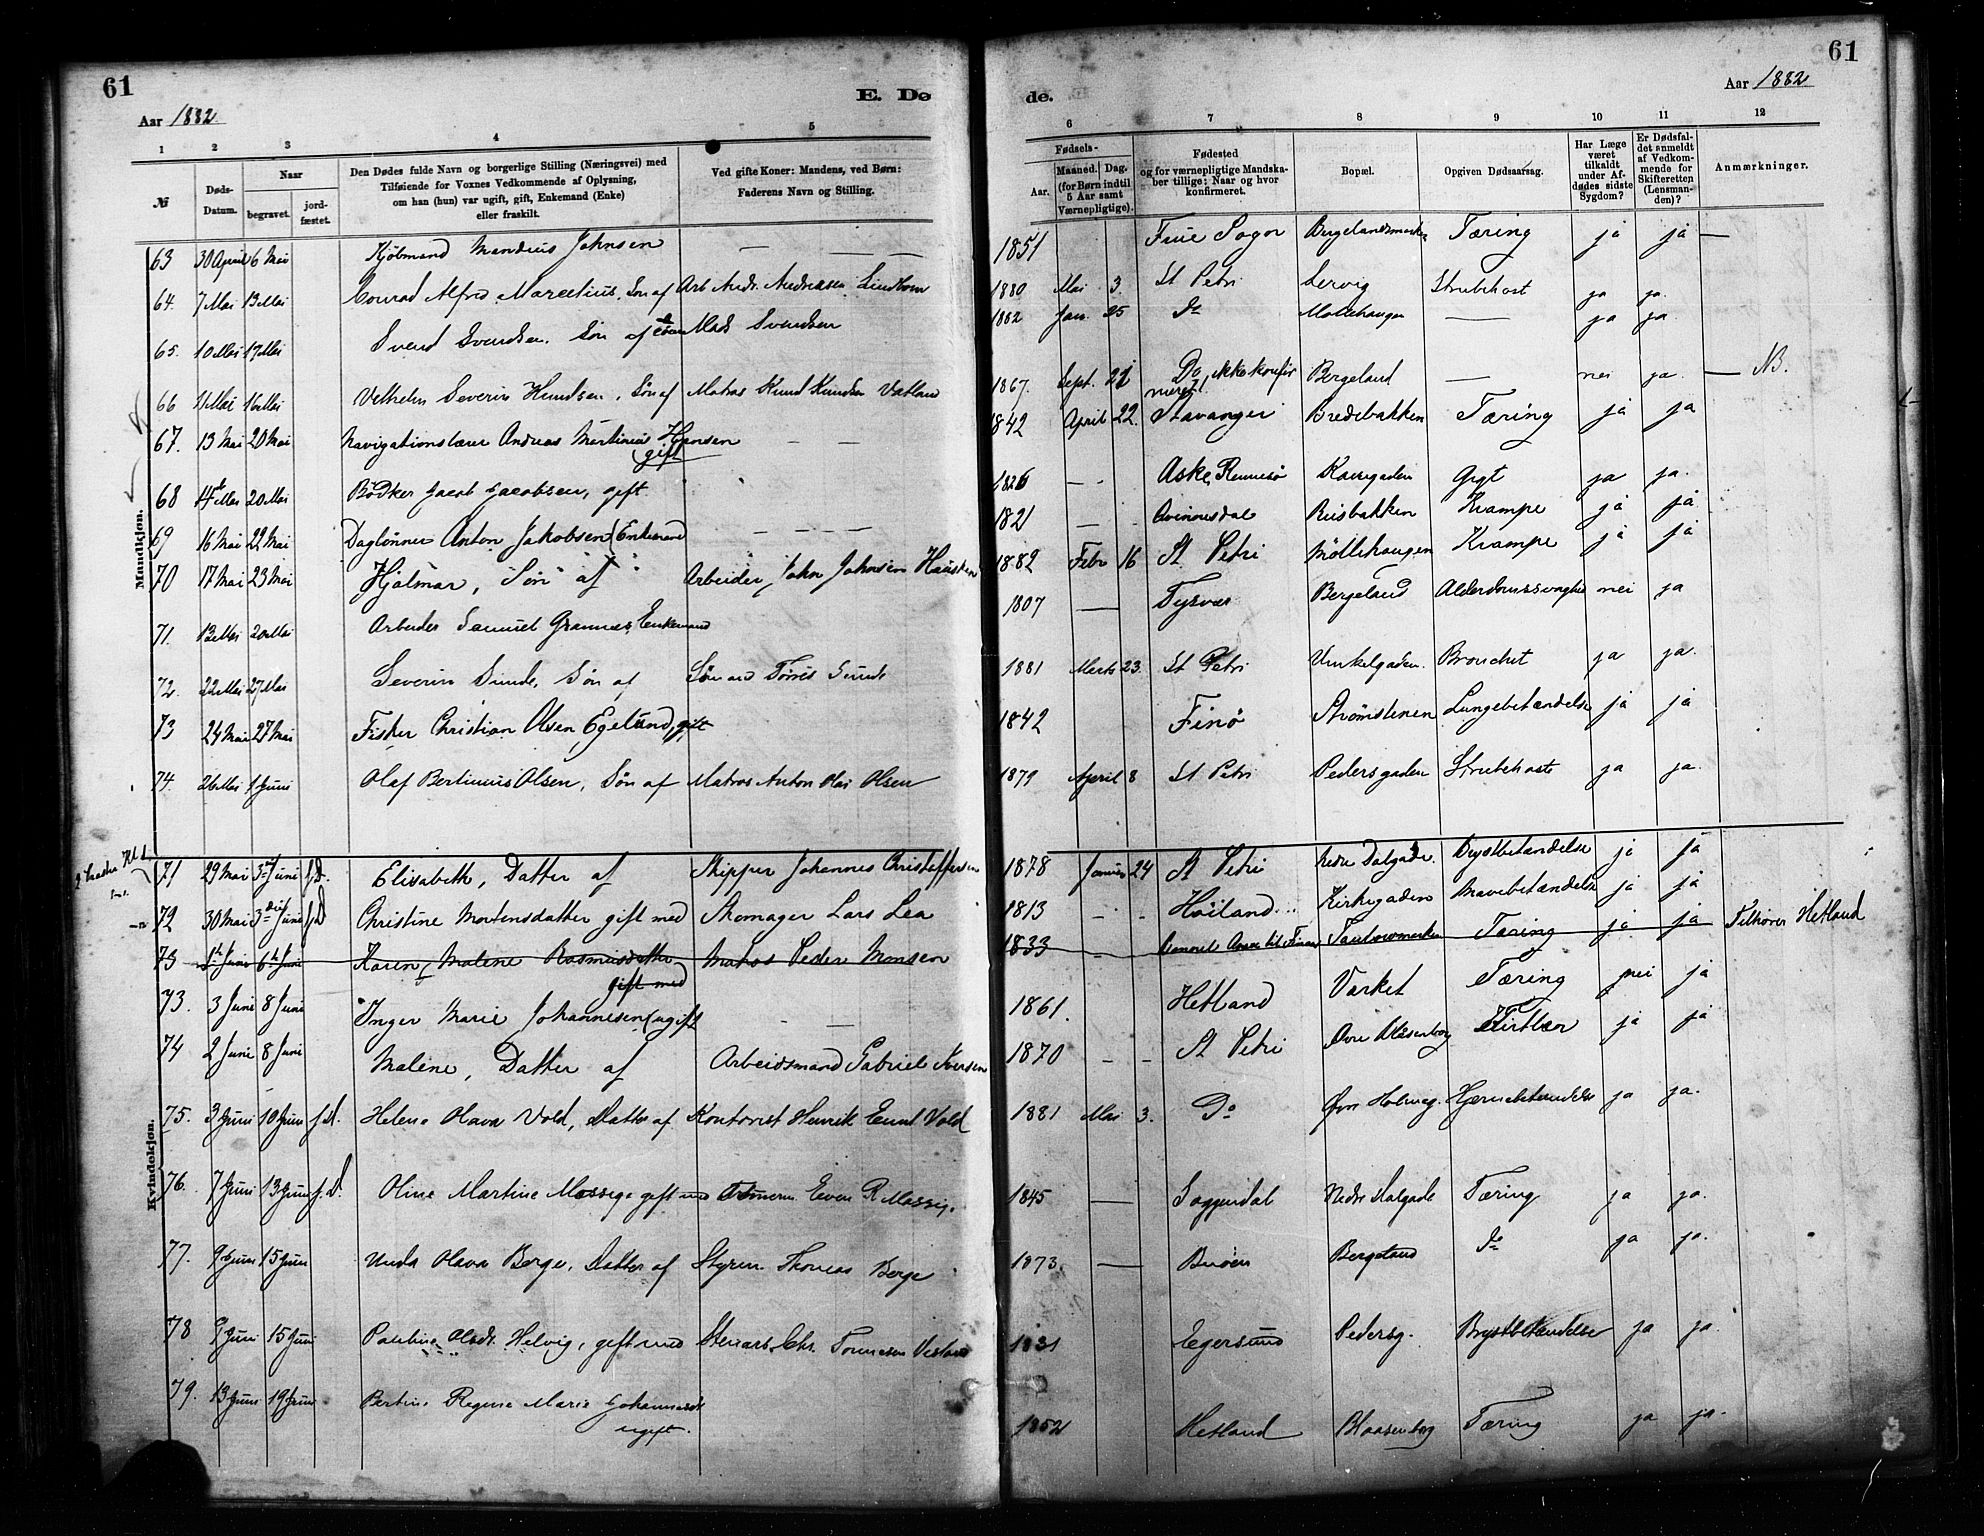 61
61
Aar 1882.
E. Døde.
Aar 1882
1 2 3 4 5 6 7 8 9 10 11 12
№
Døds-Datum.
Naar begravet. jordfæstet.
Den Dødes fulde Navn og borgerlige Stilling (Næringsvei) med Tilføiende for Voxnes Vedkommende af Oplysning, om han (hun) var ugift, gift, Enkemand (Enke) eller fraskilt.
Ved gifte Koner: Mandens, ved Børn: Faderens Navn og Stilling.
Fødsels-
Aar. Maaned. Dag. (for Børn indtil 5 Aar samt Værnepligtige).
Fødested og for værnepligtige Mandskaber tillige: Naar og hvor konfirmeret.
Bopæl.
Opgiven Dødsaarsag.
Har Læge været tilkaldt under Afdødes sidste Sygdom?
Er Dødsfaldet anmeldt af Vedkommende for Skifteretten (Lensmanden)?
Anmærkninger.
Mandkjøn.
63 30 April 6 Mai Kjøbmand Mandius Johnsen — — — 1851 Sogn Bergelandsmarken Tæring ja ja —
64. 7 Mai 13 Mai Conrad Alfred Marcelius, Søn af Arb Andr. Andreasen Lindbom 1880 Mai 3 St Petri Lervig Strubehost ja ja.
65. 10 Mai 17 Mai Svend Svendsen. Søn af Mads Svendsen 1882 Jan. 25 Do Møllehaugen — ja ja.
66 11 Mai 16 Mai Vilhelm Severin Knudsen, Søn af Matros Knud Knudsen Vatland 1867. Sept. 21 Do, ikke konfirmeret! Bergeland — nei ja. — NB.
67. 13 Mai 20 Mai Navigationslærer Andreas Martinius Hansen gift — — 1842 April 22. Stavanger Bredebakken Tæring ja ja
68 14de Mai 20 Mai Bødker Jacob Jacobsen, gift. 1826 — Aske, Rennesø Gigt ja ja.
69 16 Mai 22 Mai Daglønner Anton Jakobsen (Enkemand — — — 1821 — Risbakken Krampe ja ja
70 17 Mai 23 Mai Hjalmar, Søn af Arbeider John Johnsen Hausken 1882 Febr 16 St Petri Møllehaugen Krampe ja ja
71. 12 Mai 20 Mai Arbeider Samuel Grannes, Enkemand 1807 — Tysvær Bergeland Alderdomssvaghed nei ja
72. 22 Mai 27 Mai Severin Sunde, Søn af Sømand Tørres Sunde 1881 Marts 23. St Petri Vinkelgaden. Bronchit ja ja.
73 24 Mai 27 Mai Fisker Christian Olsen Egelund, gift 1842 Finø Strømstenen Lungebetændelse ja ja
74. 26 Mai 1 Juni Olaf Bertinius Olsen, Søn af Matros Anton Olai Olsen 1879 April 8 St Petri Pedersgaden Strubehoste ja ja.
Kvindekjøn.
71 29 Mai 3 Juni f.D. Elisabeth, Datter af Skipper Johannes Christoffersen 1878 Januar 24 St Petri Nedre Dalgade. Brystbetændelse ja ja
72 30 Mai 3die Juni f.D Christine Mortensdatter gift med Skomager Lars Lea 1813 - - Høiland Kirkegaden Mavebetændelse ja ja
73 1ste Juni 6te Juni Karen Malene Rasmusdatter gift med Matros Peder Monsen 1833 Tæring ja ja Tilhører Hetland
73. 3 Juni 8 Juni Inger Marie Johannesen (ugift — — 1861. Hetland Varket Tæring nei ja
74 2 Juni 8 Juni Malene, Datter af Arbeidsmand Gabriel Iversen 1870 - - St Petri Øvre Blåsenborg ja ja
75. 3 Juni 10 Juni f.d. Helene Olava Vold, Datter af Kontorist Henrik Vold 1881 Mai 3. Do Øvre Holmeg. Hjernebetændelse ja ja.
76. 7 Juni 13 Juni f.D. Oline Martine Mossige gift med Tømmerm. Even R Mossige. 1845 — Soggendal Nedre Dalgade Tæring ja ja.
77. 9 Juni 15 Juni Olava Berge, Datter af Styrm. Thomas Berge 1873. — Buøen Bergeland Do ja ja.
78 9 Juni 15 Juni Pauline Olsdt. Helvig, gift med Stenarb. Chr. 1831 Egersund Pedersg. Brystbetændelse ja ja.
79. 13 Juni 19 Juni Bertine Regine Marie Johannesdt. ugift. 1852 Hetland Blaasenborg Tæring ja ja.